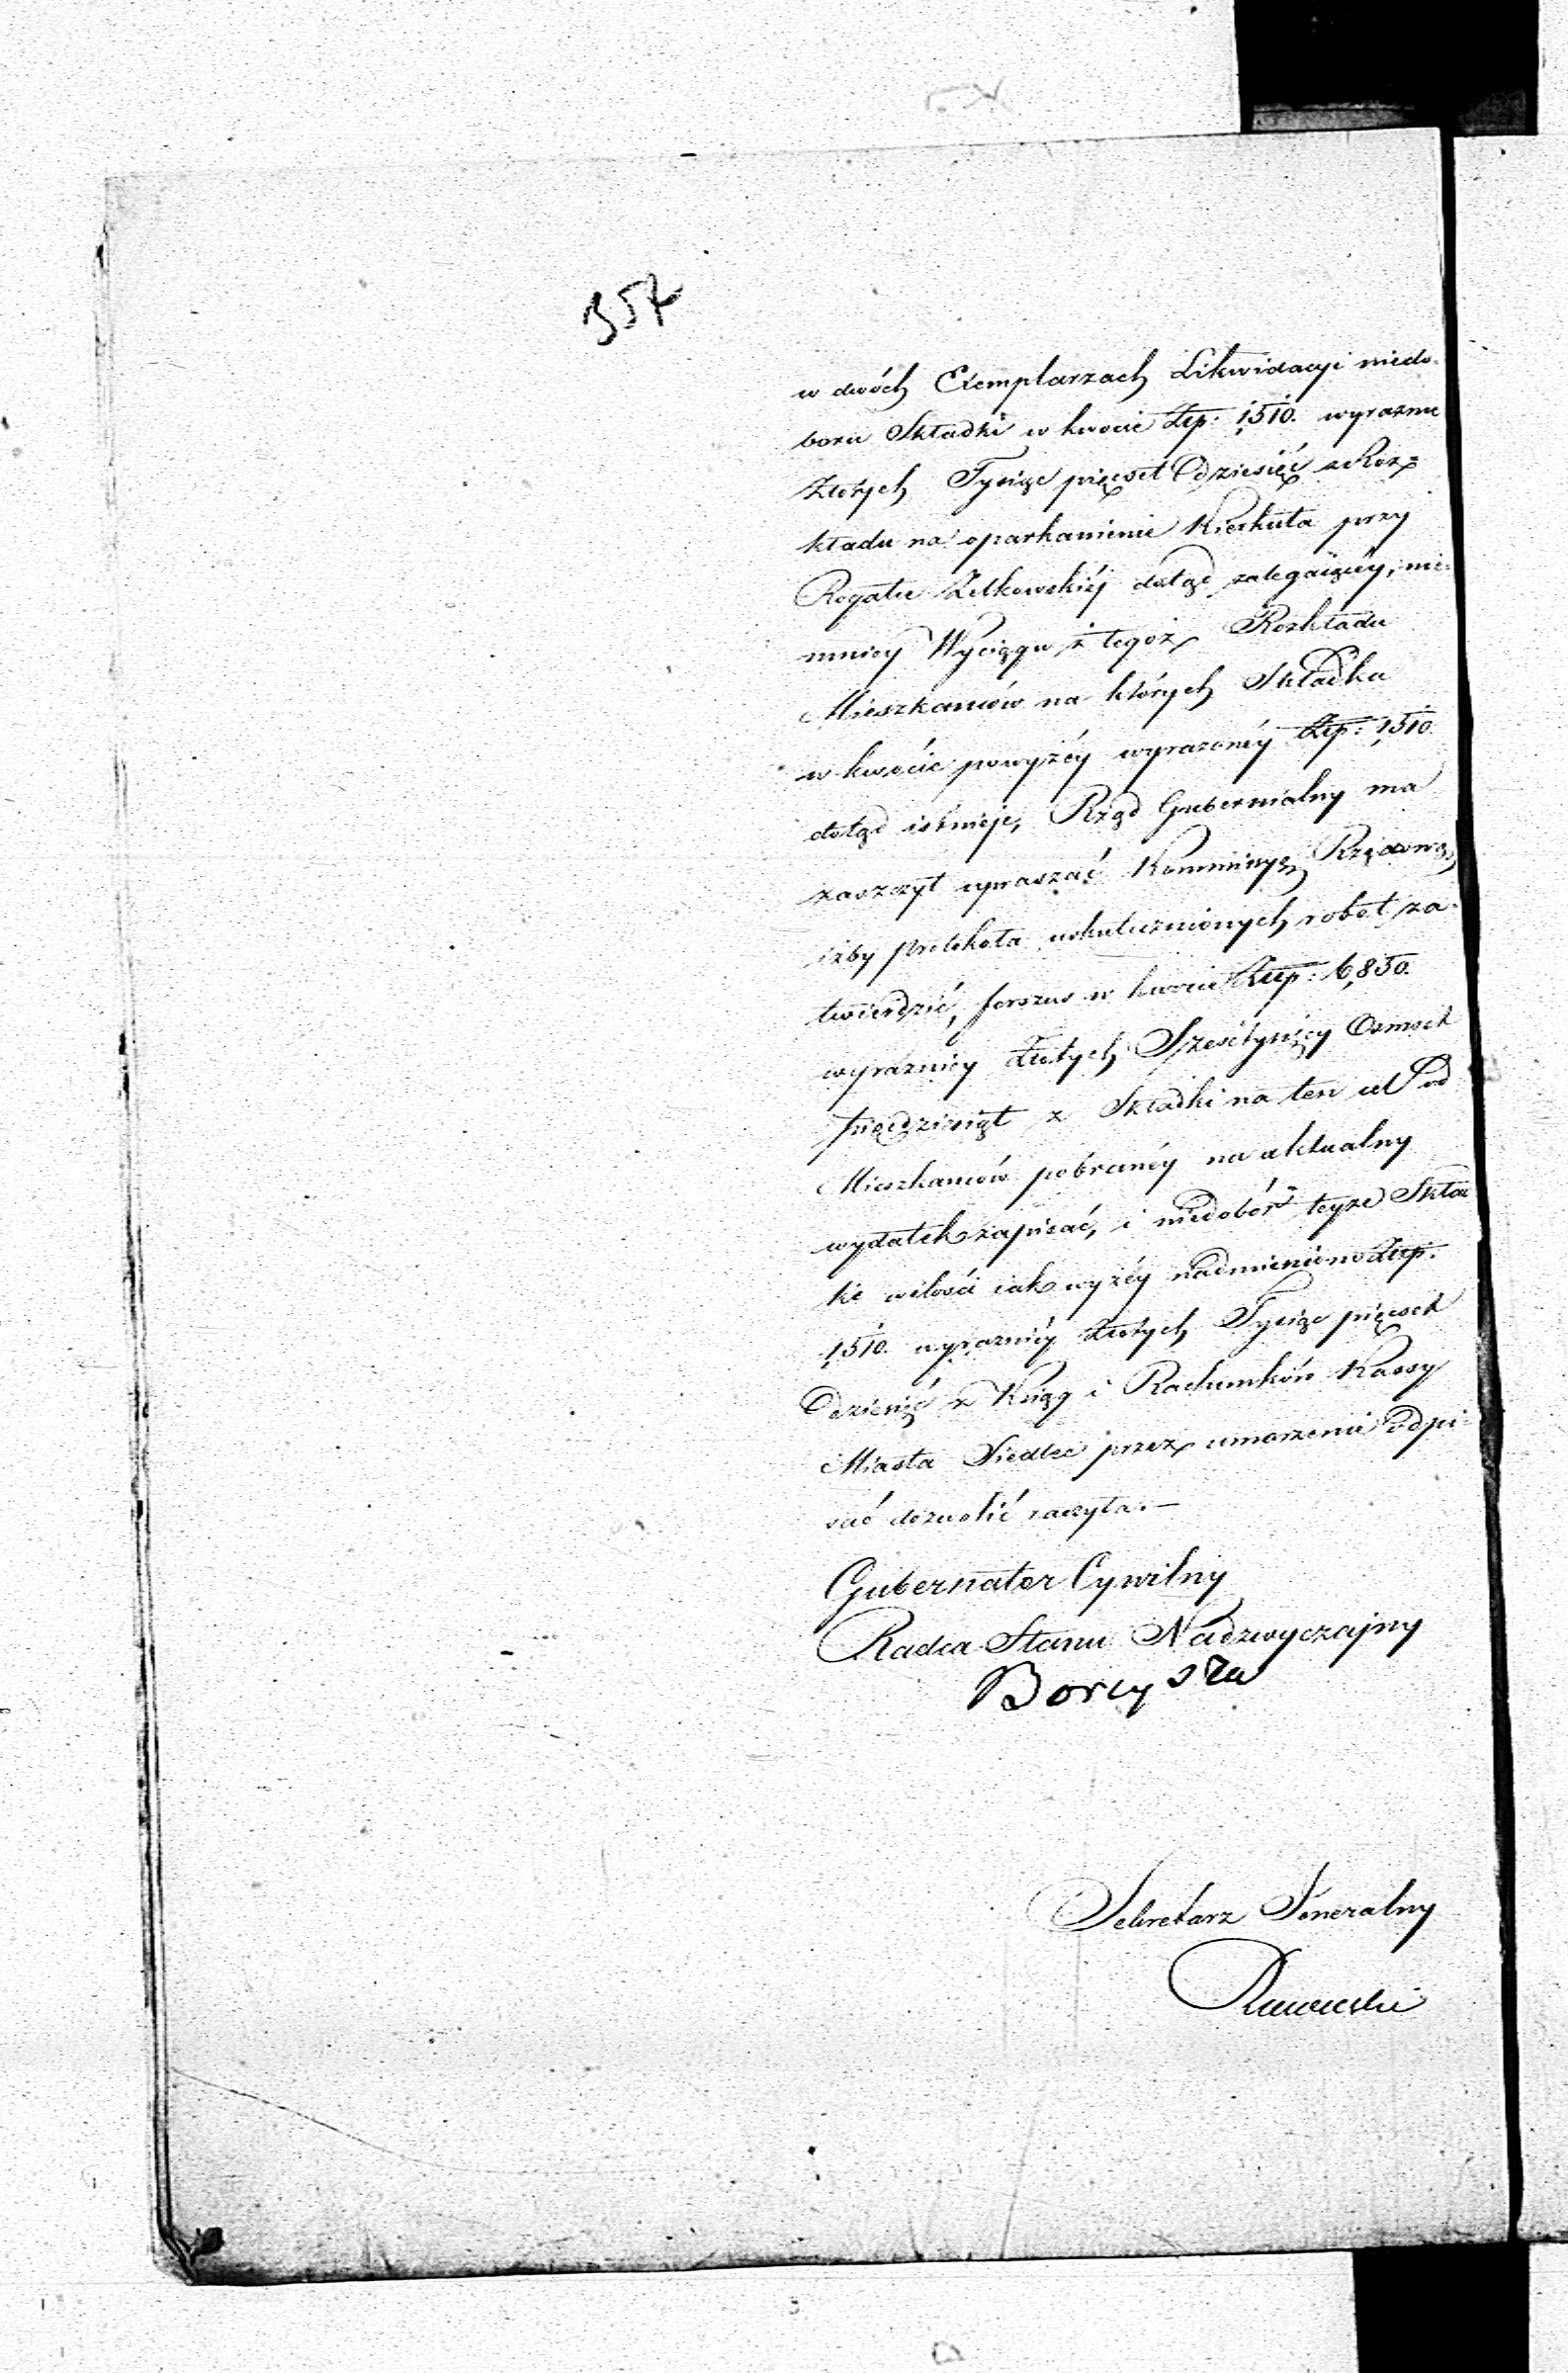 357
w dwóch Exemplarzach Likwidacyi niedo-
boru Składki w kwocie Złp: 1,510. wyraznie
Złotych Tysiąc pięćset Dziesięć z Roz=
kładu na oparkanienie Kierkuta przy
Rogatce Żelkowskiéj dotąd zalegaiącéy, nie-
mniey Wyciągu z tegoż Rozkładu
Mieszkańców na których Składka
w kwocie powyżéy wyrazonéy Złp: 1,510
dotąd istnieje, Rząd Gubernialny ma
zaszczyt upraszać Kommissyą Rządową,
iżby protokoła uskutecznionych robot za-
twierdzić, forszus w kwocie Złp: 6,850.
wyrazniey Złotych Sześćtysięcy Osmset
pięćdziesiąt z Składki na ten cel od
Mieszkańców pobranéy na aktualny
wydatek zapisać, i niedobór teyże Skład
ki w ilości iak wyżéy nadmieniono Złp.
1,510. wyrazniéy Złotych Tysiąc pięćset
Dziesięć z Ksiąg i Rachunków Kassy
Miasta Siedlec przez umorzenie odpi-
sać dozwolić raczyła.—
Gubernator Cywilny
Radca Stanu Nadzwyczajny
Sekretarz Jeneralny